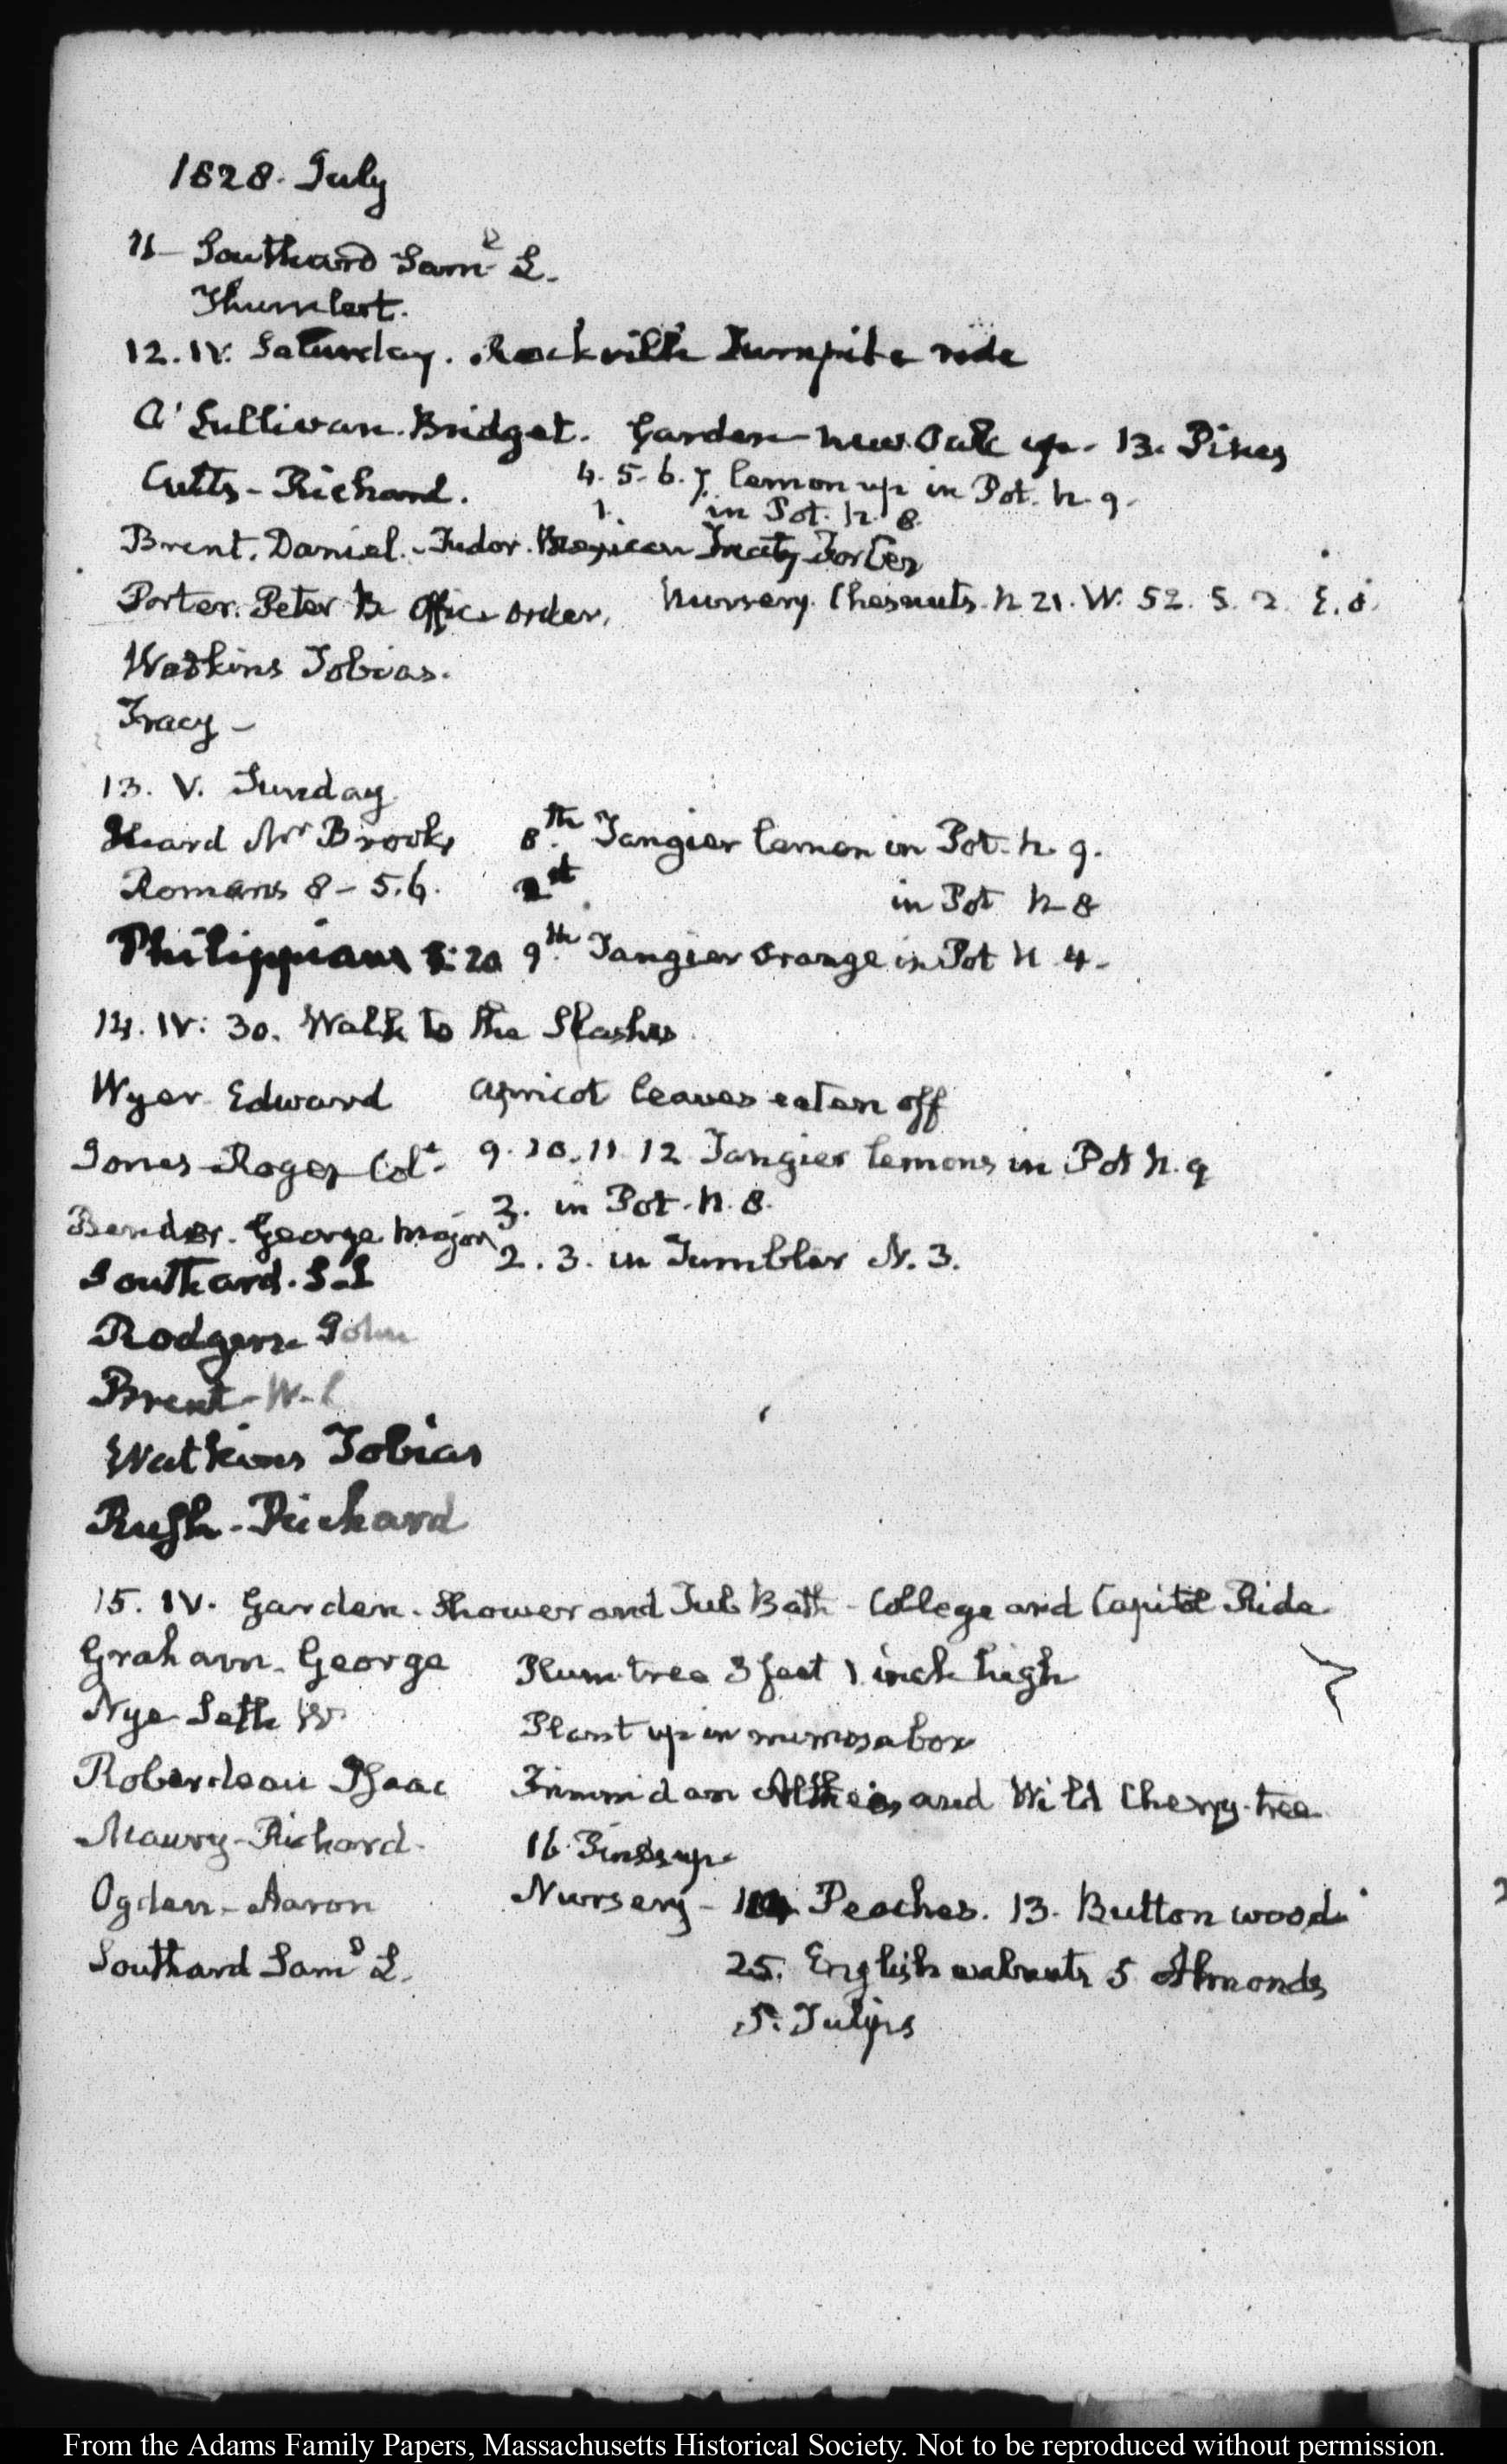 1828. July
11- Southard Saml. L.
Thumlert.
12. IV. Saturday. Rockville Turnpike ride
O'Sullivan. Bridget. Garden- new Oak up- 13. Pines
Cutts- Richard. 4. 5. 6. 7. lemon up in Pot. N. 9.
1. in Pot. N. 8.
Brent. Daniel.- Tudor. Mexican Treaty
Porter. Peter B. Office order. Nursery. Chesnuts. N 21. W. 52. S. 2. E. 0.
Watkins Tobias.
Tracy-
13. V. Sunday
Heard Mr. Brooke 8th. Tangier lemon in Pot. N. 9.
Romans 8- 5. 6. 2 in Pot N 8
Philippians 3: 20 9th. Tangier Orange in Pot N 4.
14. IV: 30. Walk to the Slashes
Wyer Edward Apricot leaves eaten off
Jones- Roger Col. 9. 10. 11. 12 Tangier lemons in Pot N. 9
3. in Pot. N. 8.
Bender. George Major
2. 3. in Tumbler N. 3.
Southard. S. L
Rodgers John
Brent- W. L
Watkins Tobias
Rush- Richard
15. IV. Garden. Shower and Tub Bath- College and Capitol Ride
Graham. George Plum tree 3 feet 1 inch high
Nye Seth W. Plant up in mimosa box
Roberdeau Isaac Trimm'd an Althea and Wild Cherry-tree
Maury- Richard. 16 Pines up
Ogden- Aaron Nursery- Peaches. 13. Button wood
Southard Saml L. 25. English walnuts 5 Almonds
5. Tulips
From the Adams Family Papers, Massachusetts Historical Society. Not to be reproduced without permission.